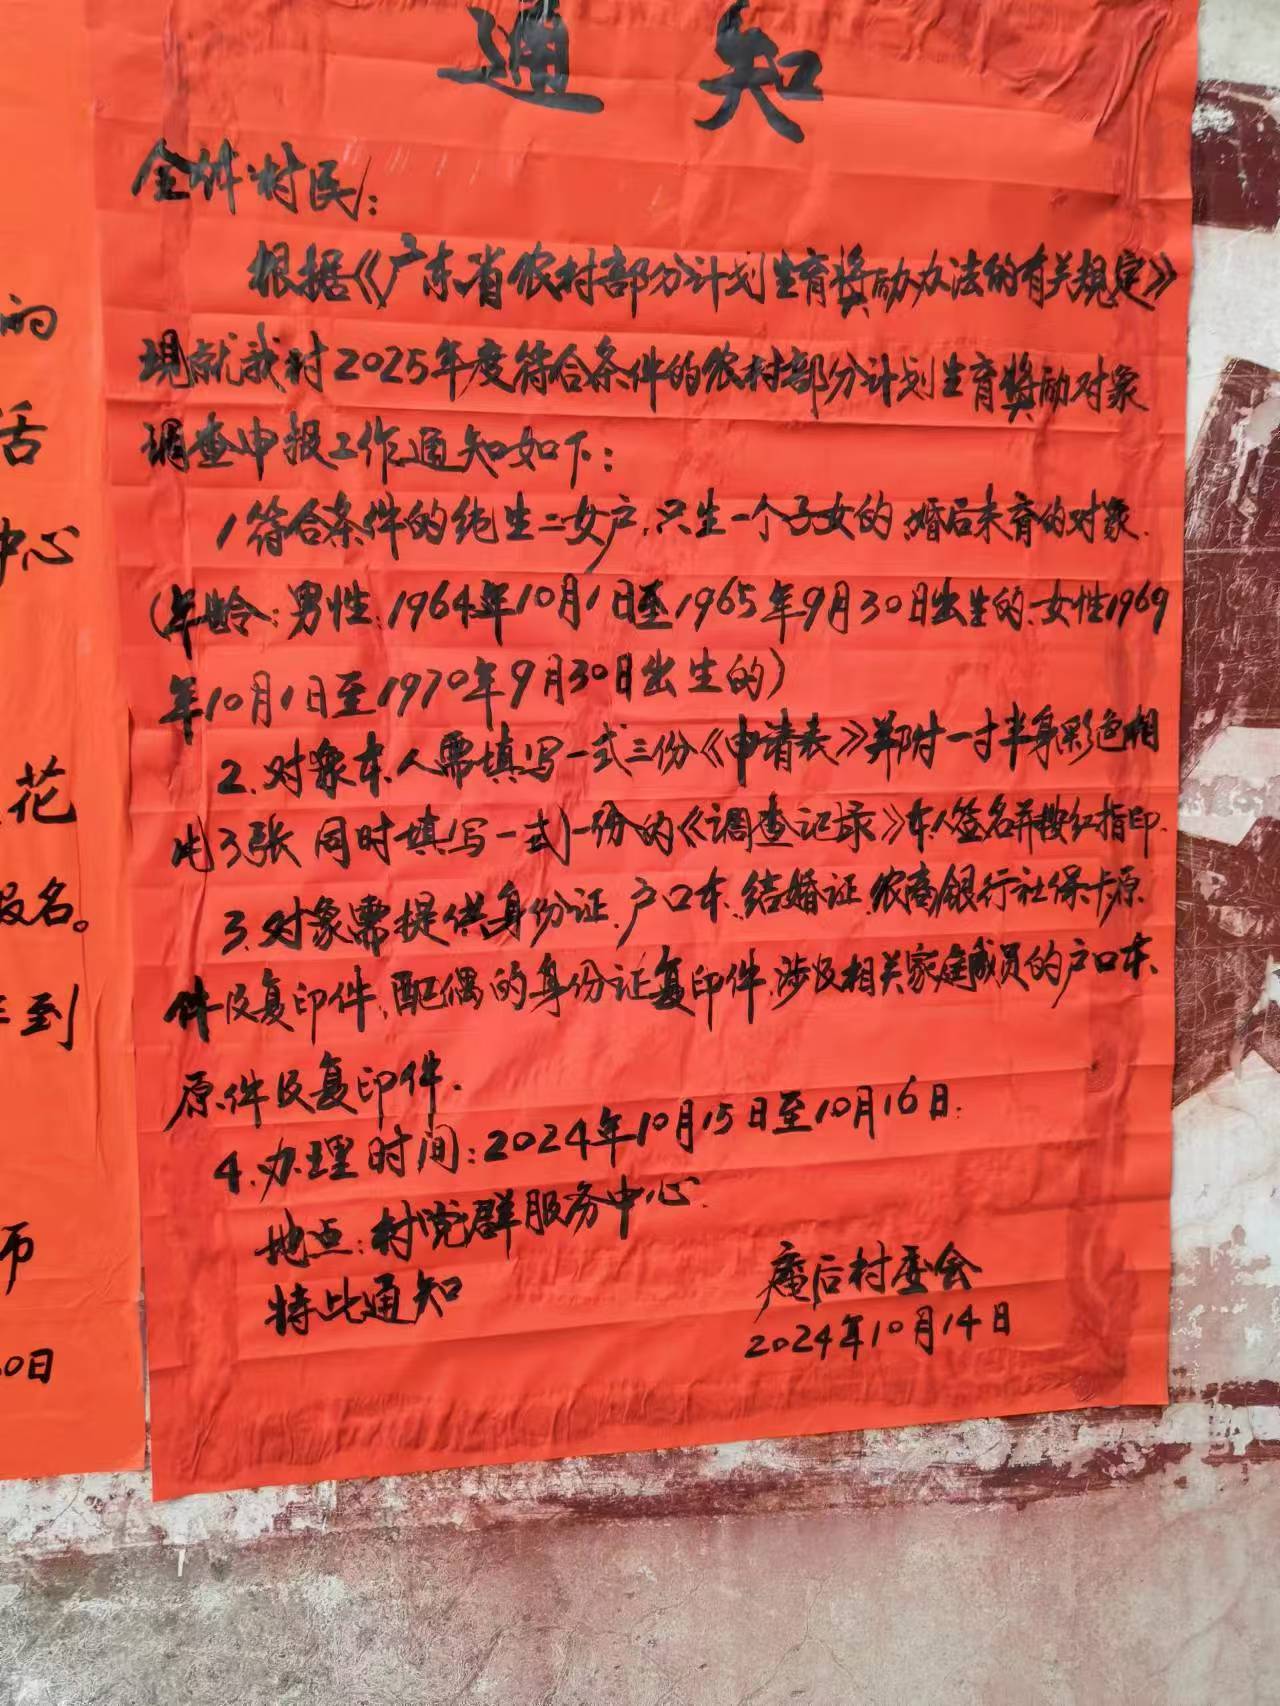 通知
全体村民:
根据《广东省农村部分计划生育奖励办法的有关规定》
现就我村2025年度符合条件的农村部分计划生育奖励对象
调查申报工作通知如下:
1符合条件的纯生二女户、只生一个子女的、婚后未育的对象.
(年龄:男性:1964年10月1日至1965年9月30日出生的、女性1969
年10月1日至1970年9月30日出生的)
2.对象本人需填写一式三份《申请表》并附一寸半身彩色相
片3张同时填写一式一份的《调查记录》本人签名并按红指印.
3.对象需提供身份证、户口本、结婚证、农商银行社保卡原
件及复印件,配偶的身份证复印件,涉及相关家庭成员的户口本、
原件及复印件.
4.办理时间:2024年10月15日至10月16日.
地点:村党群服务中心.
特此通知
庵后村委会
2024年10月14日
的
活
中心
花
报名。
到
币
0日